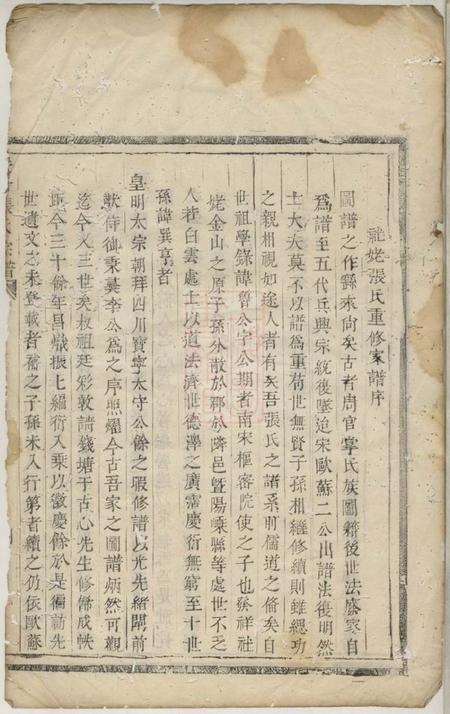 祉姥張氏重修家譜序
圖譜之作繇來尚矣古者周官掌氏族圖籍後世法廢家自
為譜至五代兵興宗統復墜迨宋歐蘇二公出譜法復明然
士大夫莫不以譜爲重苟世無賢子孫相繼修續則雖緦功
之親相視如途人者有矣吾張氏之諸系前儒道之脩矣自
世祖學錄諱曾公字公期者南宋樞密院使之子也發祥祉
姥金山之原子孫外散於郡於隣邑暨陽嵊縣等處世不乏
人若白雲處士以道法濟世德澤之廣霈慶衍無窮至十世
孫諱巽亨者
皇明太宗朝拜四川寶寧太守公餘之暇修譜以光先緒聞前
獻侍御秉彜李公爲之序照耀今古吾家之圖譜炳然可觀
迄今又三世矣叔祖廷彩敦請錢塘于古心先生修備成帙
距今三十餘年昌熾振上緝衍入乘以徵慶餘於是徧訪先
世遺文之未登載者裔之子孫未入行第者續之仍依歐蘇
張氏宗譜